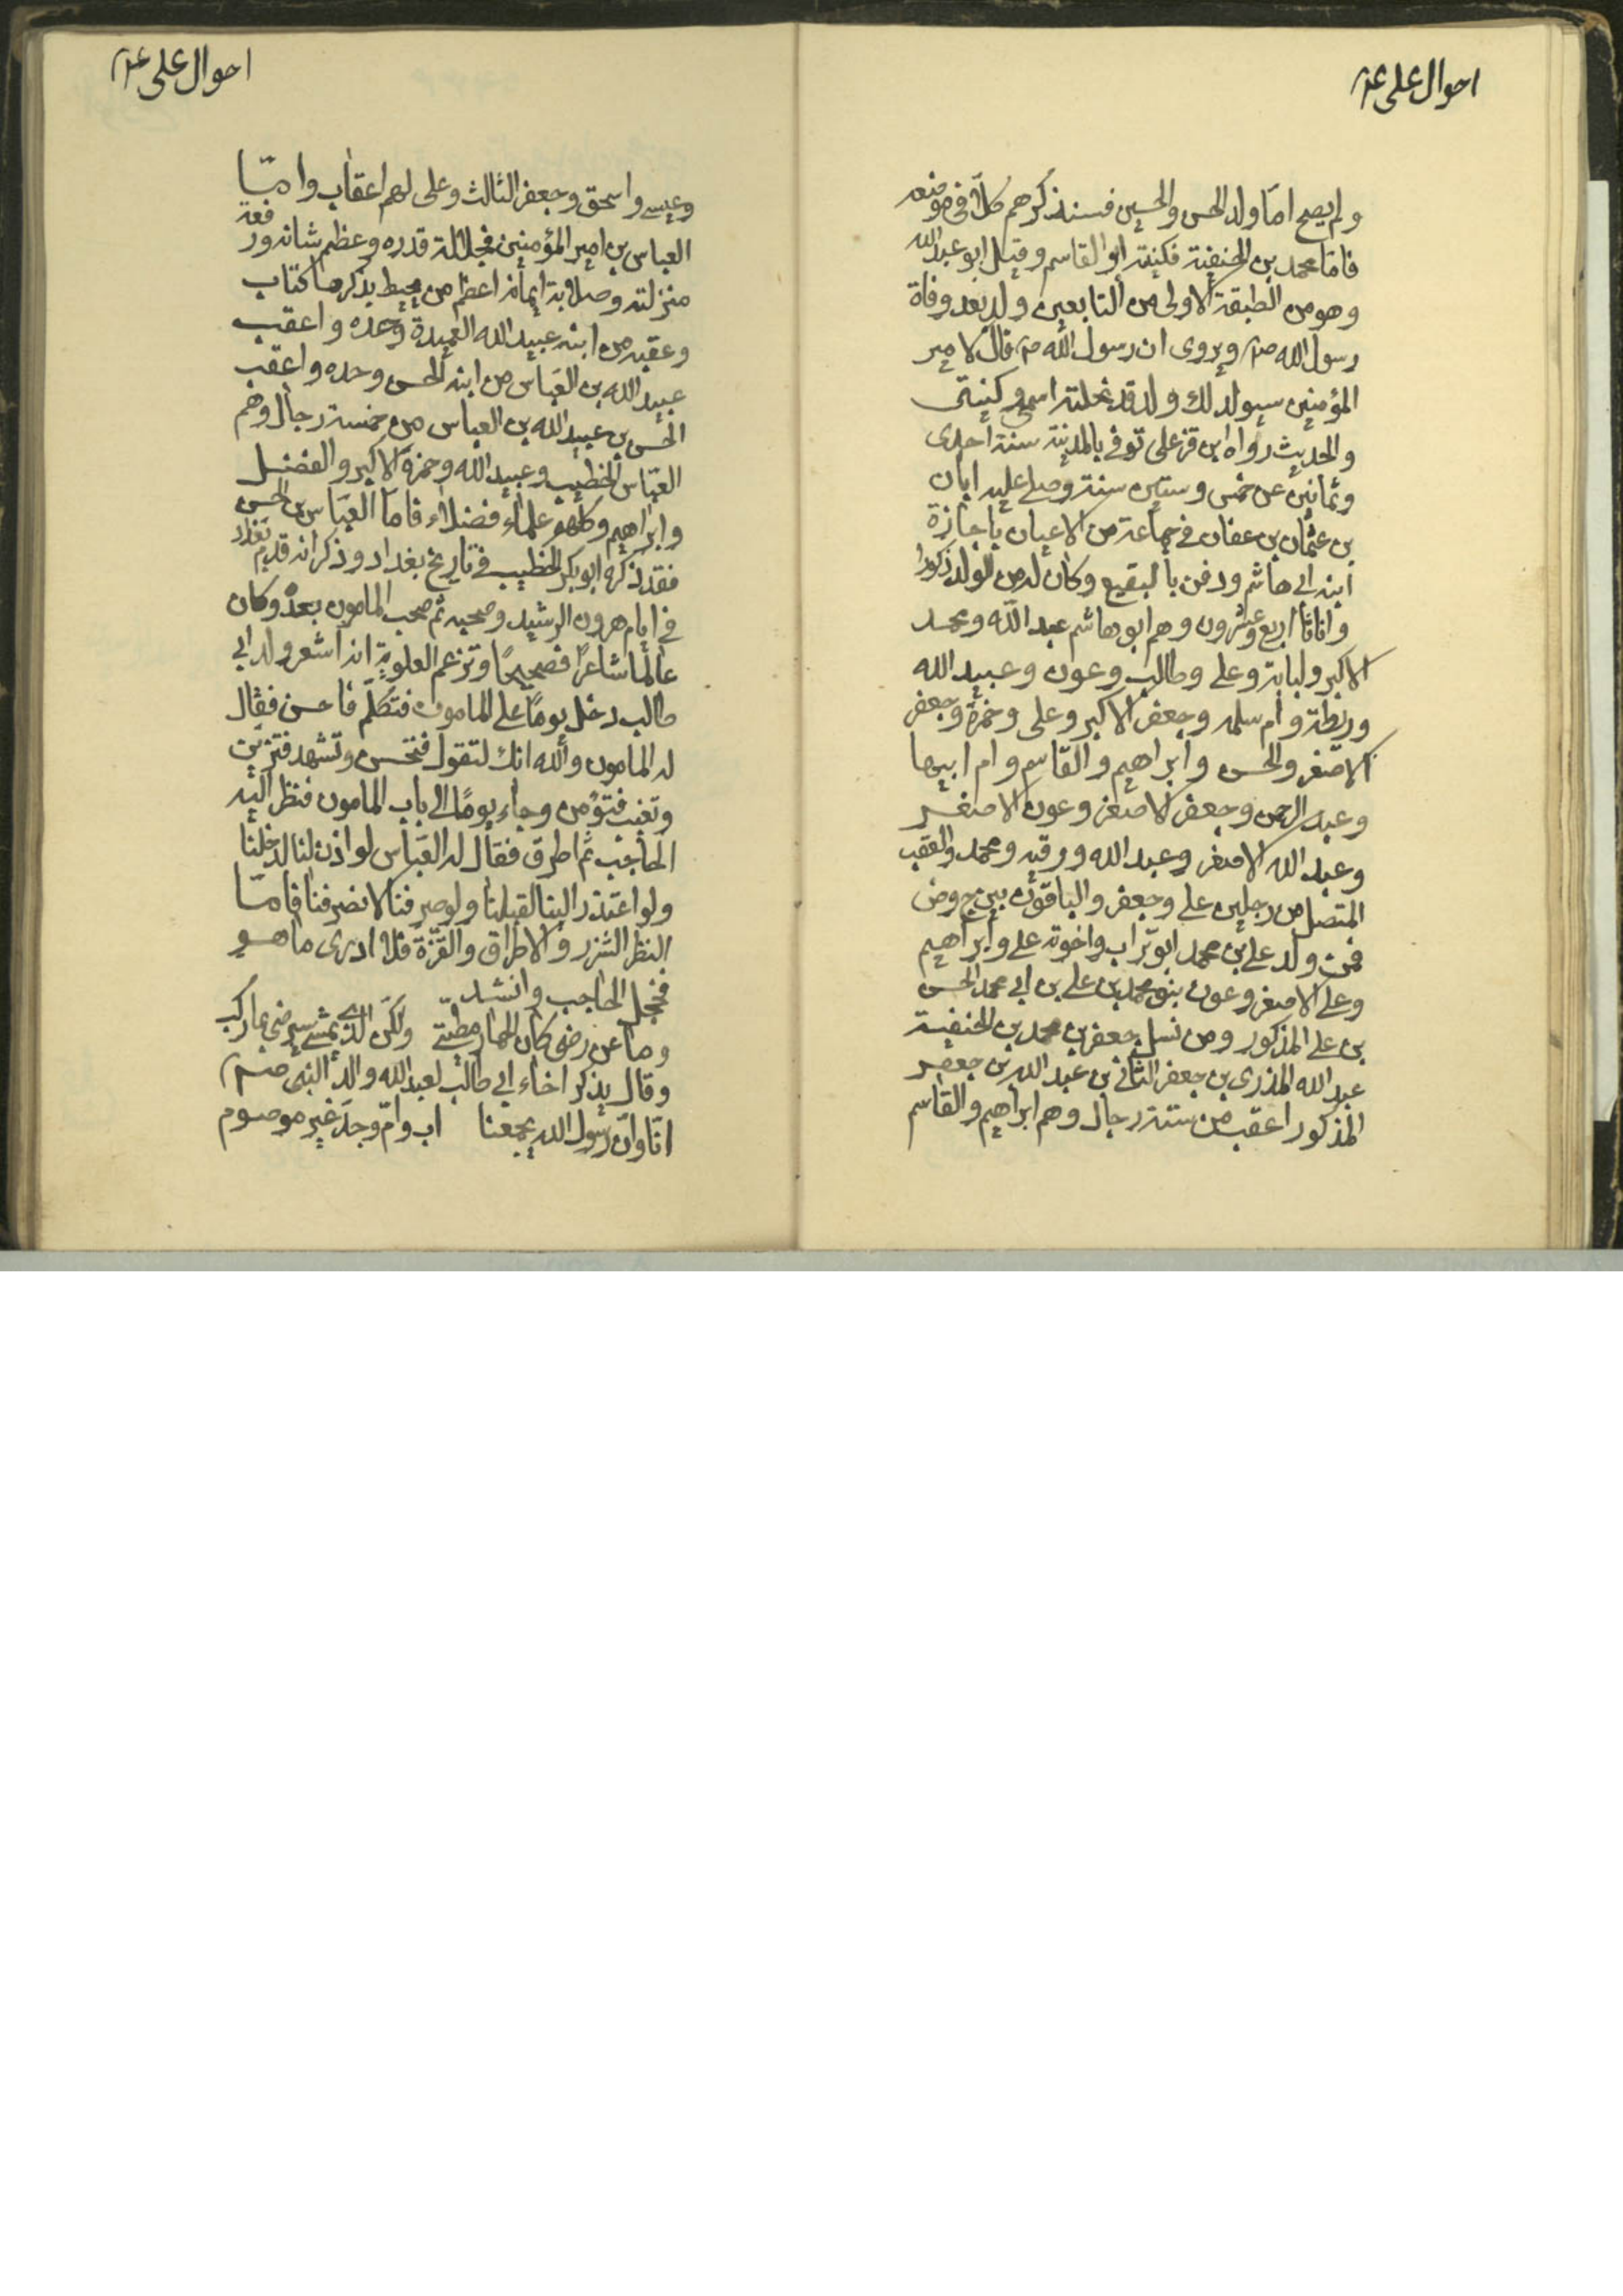 احوال علی ع
ولم يصح اما ولد الحسن والحسين فسنذكرهم كلا فى موضعه
فاما محمد بن الحنفية فكنيته ابو القاسم وقيل ابو عبد الله
وهو من الطبقة الاولى من التابعين ولد بعد وفاة
رسول الله ص ويروى ان رسول الله ص قال لامير
المؤمنين سيولد لك ولد قد نحلته اسمى وكنيتى
والحديث رواه ابن قزعلى توفى بالمدينة سنة احدى
وثمانين عن خمس وستين سنة وصلى عليه ابان
بن عثمان بن عفان فى جماعة من الاعيان باجازة
ابنه ابى هاشم ودفن بالبقيع وكان له من الولد ذكورا
واناثا اربع وعشرون وهم ابو هاشم عبد الله ومحمد
الاكبر ولبابة وعلى وطالب وعون وعبيد الله
وريطة وام سلمه وجعفر الاكبر وعلى وحمزة وجعفر
الاصغر والحسن وابراهيم والقاسم وام ابيها
وعبد الرحمن وجعفر الاصغر وعون الاصغر
وعبد الله الاصغر وعبد الله ورقيه ومحمد والعقب
المتصل من رجلين على وجعفر والباقون بين
فمن ولد على بن محمد ابو تراب واخوته على وابراهيم
وعلى الاصغر وعون بنو محمد بن على بن ابى محمد الحسن
بن على المذكور ومن نسل جعفر بن محمد بن الحنفية
عبد الله المذرى بن جعفر الثانى بن عبد الله بن جعفر
المذكور اعقب من ستة رجال وهم ابراهيم والقاسم
احوال علی ع
وعيسى واسحق وجعفر الثالث وعلى لهم اعقاب واما
العباس بن امير المؤمنين فجلالة قدره وعظم شانه ورفعة
منزلته وصلابة ايمانه اعظم من يحيط بذكرها كتاب
وعقبه من ابنه عبيد الله العميدة وحده واعقب
عبيد الله بن العباس من ابنه الحسن وحده واعقب
الحسن بن عبيد الله بن العباس من خمسة رجال وهم
العباس الخطيب وعبيد الله وحمزة الاكبر والفضل
وابراهيم وكلهم علماء فضلاء فاما العباس بن الحسن
فقد ذكره ابو بكر الخطيب فى تاريخ بغداد وذكر انه قدم بغداد
فى ايام هرون الرشيد وصحبه ثم صحب المامون بعده وكان
عالما شاعرا فصيحا وتزعم العلوية انه اشعر ولد ابى
طالب دخل يوما على المامون فتكلم فاحسن فقال
له المامون والله انك لتقول فتحسن وتشهد فتزين
وتغيب فتؤمن وجاء يوما الى باب المامون فنظر اليه
الحاجب ثم اطرق فقال له العباس لو اذن لنا لدخلنا
ولو اعتذر الينا لقبلنا ولو صرفنا لانصرفنا فاما
النظر الشزر والاطراق والقزة فلا ادرى ما هو
فخجل الحاجب وانشد
وما عن رضى كان الحمار مطيتى ولكن الذى يمشى سيرضى بما ركب
وقال يذكر اخاء ابى طالب لعبد الله والد النبى صم
انا وان رسول الله يجمعنا اب وام وجد غير موصوم